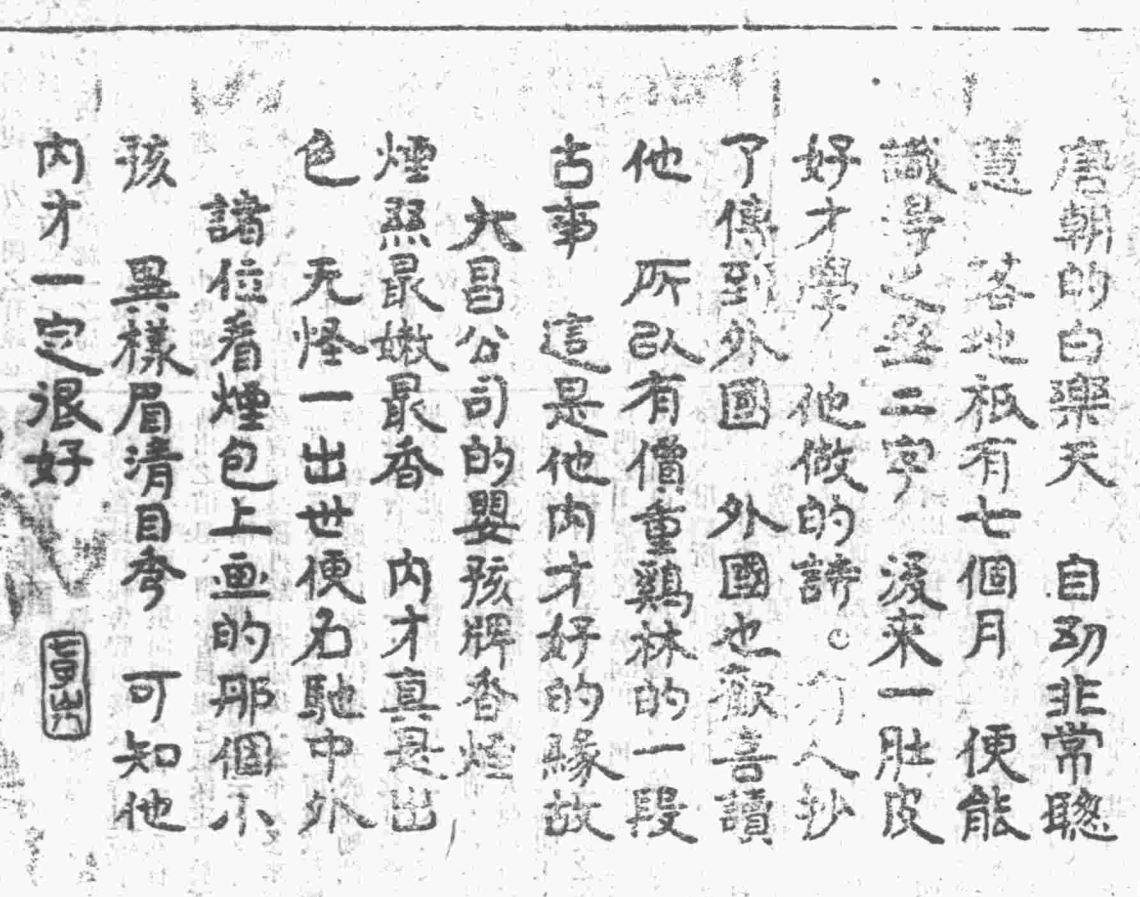 唐朝的白樂天　自幼非常聰
慧　落地祇有七個月　便能
識得之無二字　後來一肚皮
好才學　他做的詩。有人抄
了傳到外國　外國也歡喜讀
他　所以有價重鷄林的一段
古事　這是他内才好的緣故
大昌公司的嬰孩牌香煙
煙絲最嫩最香　内才真是出
色　无怪一出世便名馳中外
諸位看煙包上画的那個小
孩　異樣眉清目秀　可知他
内才一定很好